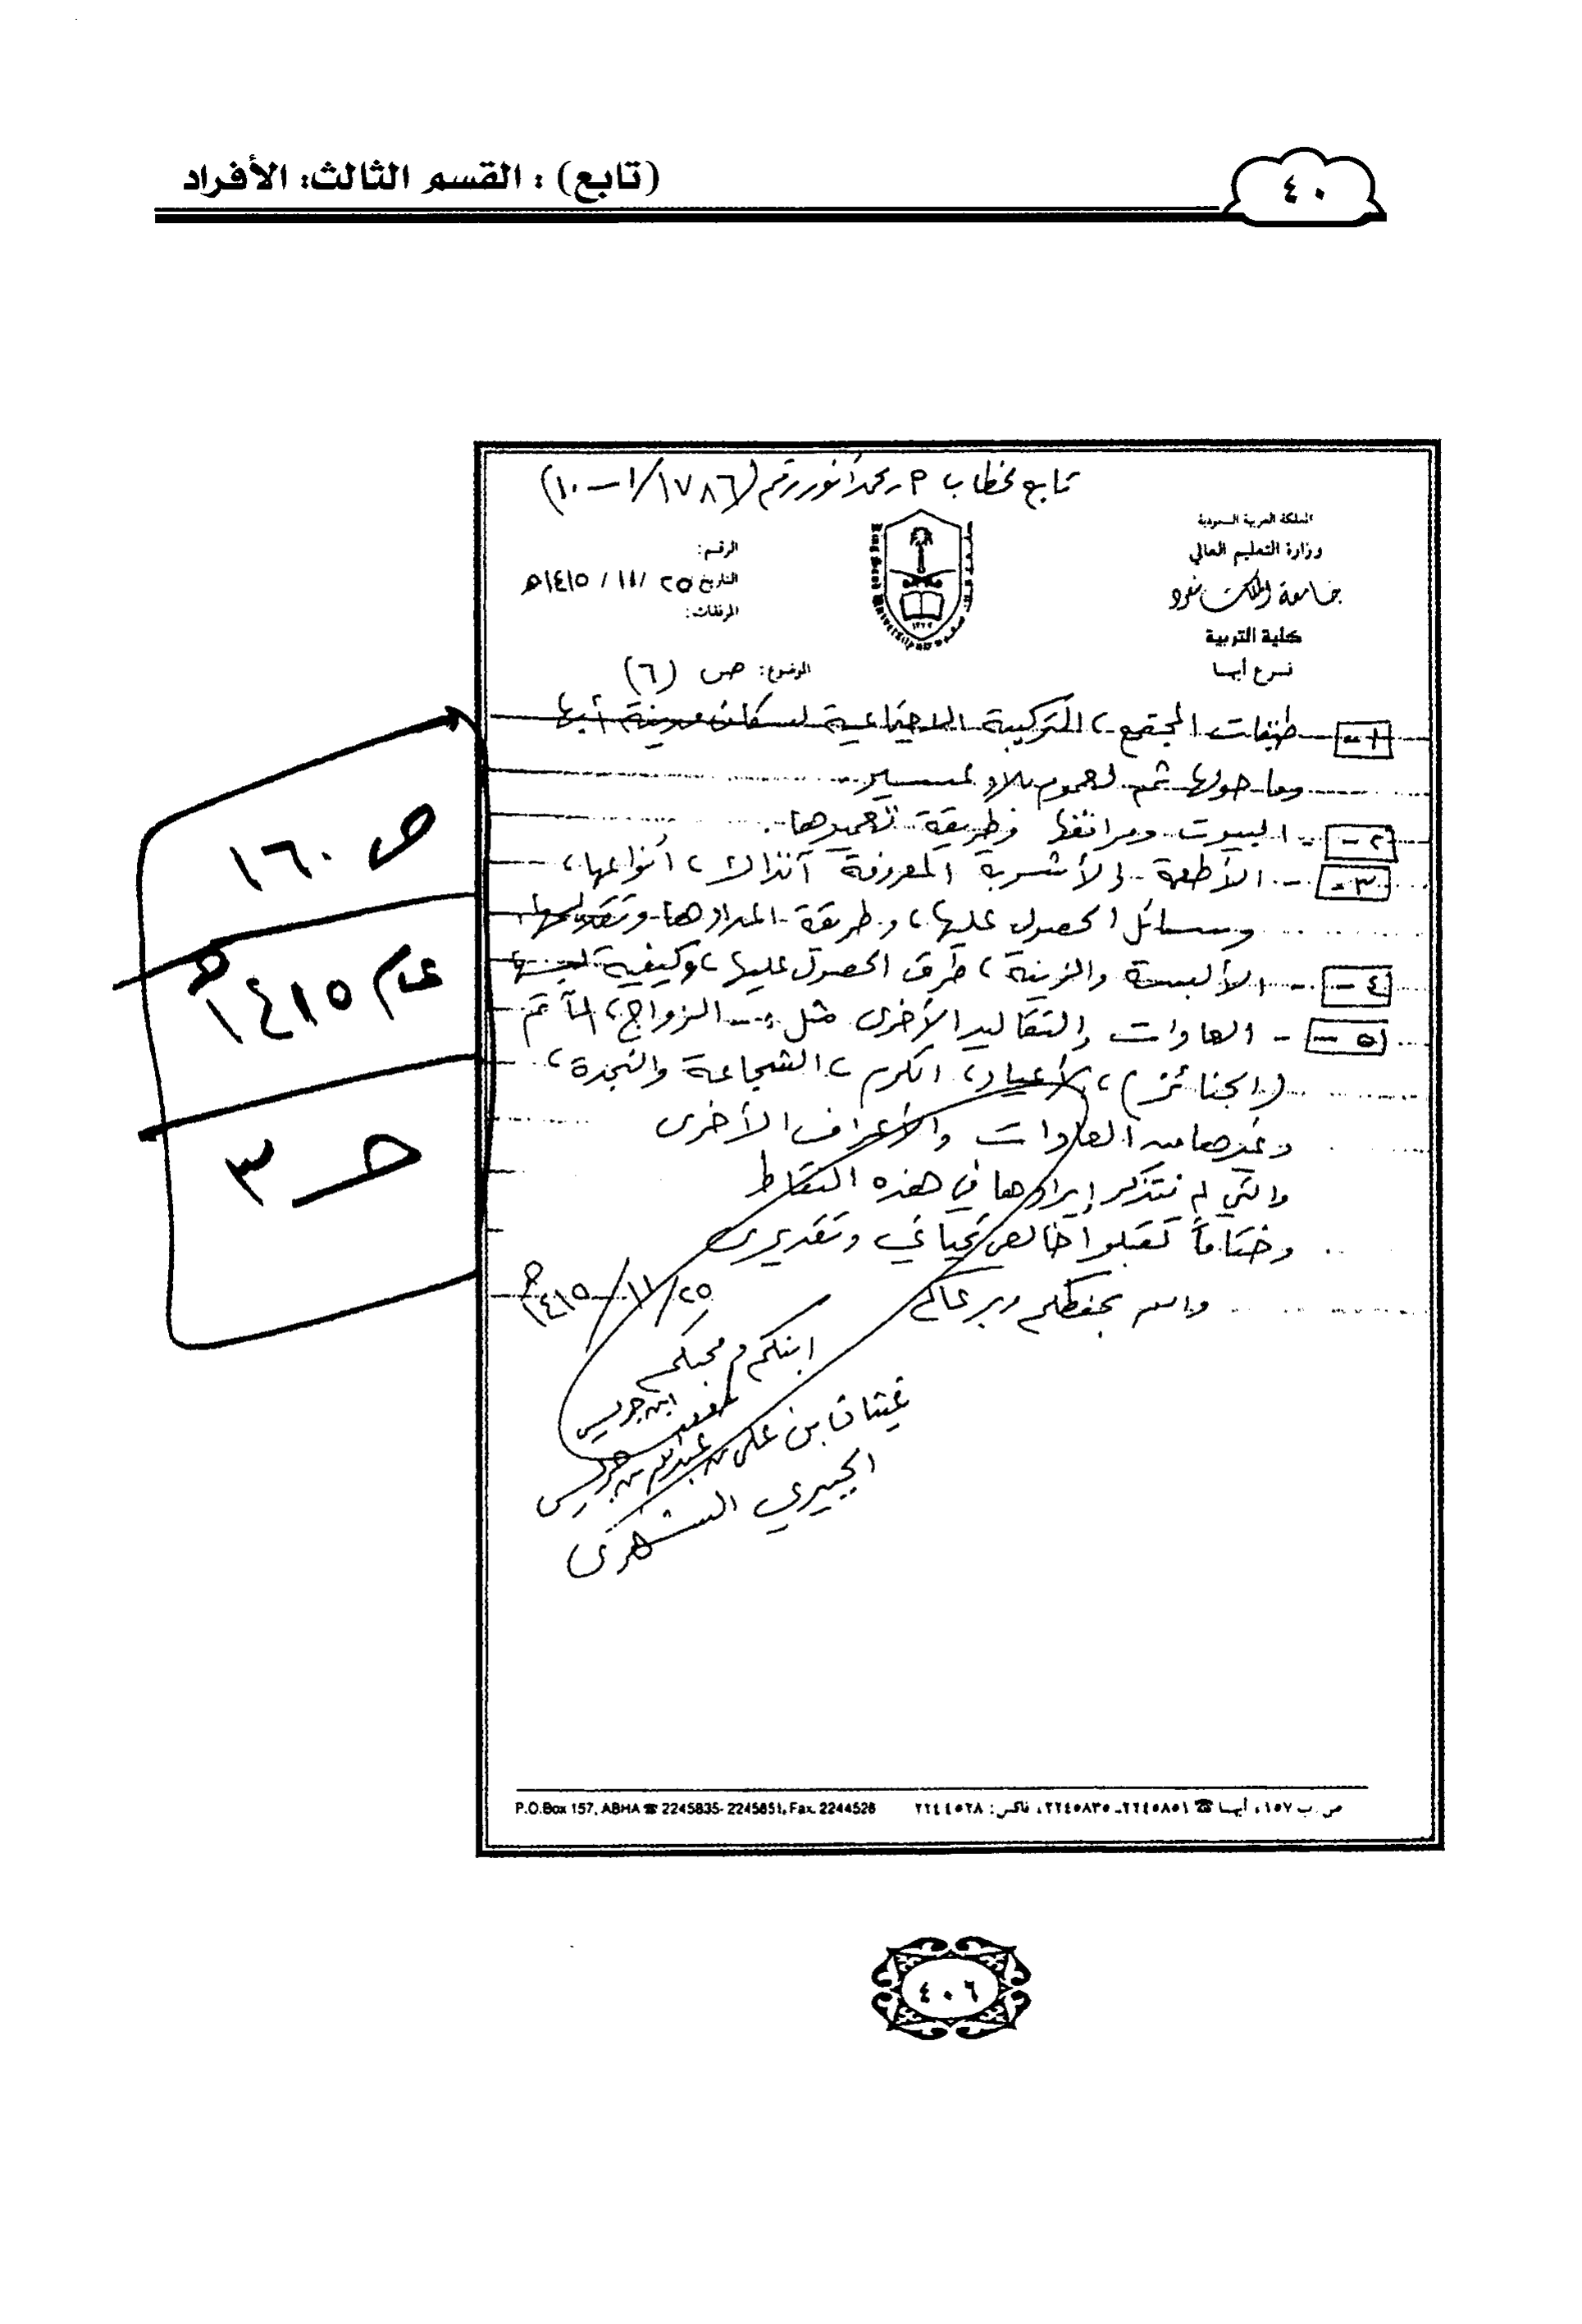 (تابع) : القسم الثالث: الأفراد
٤٠
تابع خطاب م. محمد أنور رقم (١٧٨٦/ ١ - ١٠)
المملكة العربية السعودية
وزارة التعليم العالي
جامعة الملك سعود
كلية التربية
فرع أبها
King Saud University
الرقم:
التاريخ ٢٥ / ١١ / ١٤١٥هـ
المرفقات:
الموضوع: ص (٦)
١- طبقات المجتمع، التركيبة الاجتماعية لسكان مدينة أبها
وما حولها ثم لعموم بلاد عسير
٢- البيوت ومرافقها وطريقة تعميرها.
٣- الأطعمة والأشربة المعروفة آنذاك، أنواعها،
وسائل الحصول عليها، وطريقة إعدادها وتقديمها.
٤- الألبسة والزينة، طرق الحصول عليها، وكيفية لبسها
٥- العادات والتقاليد الأخرى مثل:- الزواج، المآتم
(الجنائز)، الأعياد، الكرم، الشجاعة والنجدة،
وغيرها من العادات والأعراف الأخرى
والتي لم نتذكر إيرادها في هذه النقاط
وختاماً تقبلوا خالص تحياتي وتقديري
والله يحفظكم ويرعاكم
٢٥/ ١١/ ١٤١٥هـ
ابنكم ومحبكم
ابن جريس
غيثان بن علي بن عبدالله بن جريس
الجبيري الشهري
ص ١٦٠
عام ١٤١٥هـ
حـ ٣
P.O.Box 157, ABHA ☎ 2245835- 2245851, Fax. 2244528
ص. ب ١٥٧، أبها ☎ ٢٢٤٥٨٥١ـ ٢٢٤٥٨٣٥، فاكس: ٢٢٤٤٥٢٨
٤٠٦